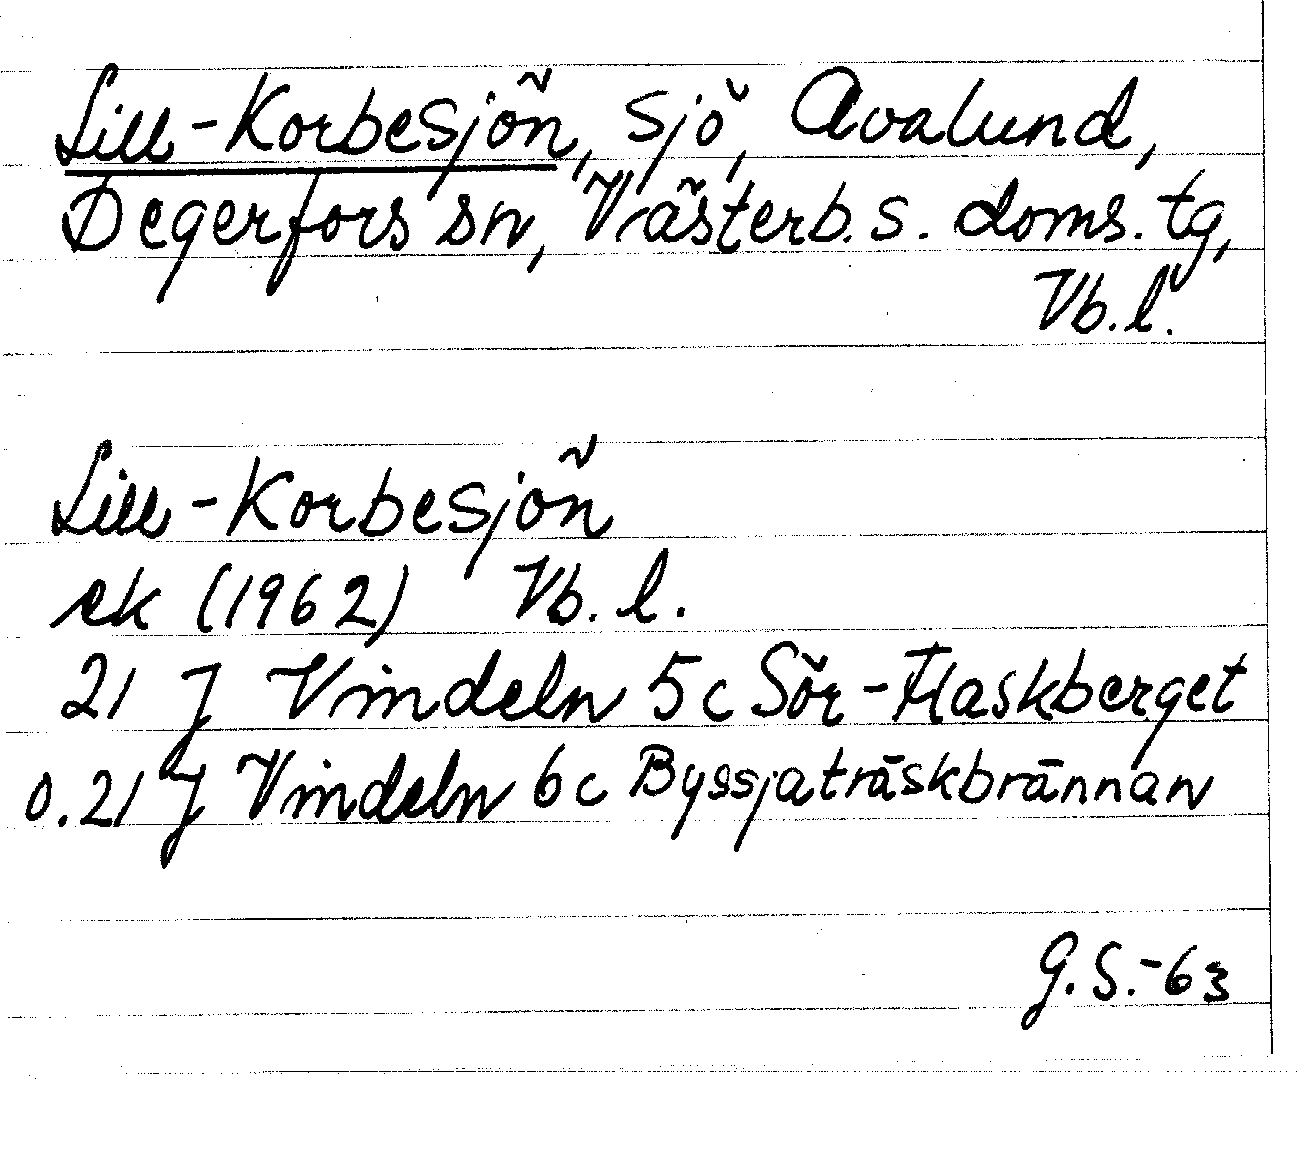 Lill-Korbesjön, sjö, Avalund,
Degerfors sn, Västerb. s. doms. tg,
Vb. l.
Lill-Korbesjön
ek (1962) Vb. l.
21 J Vindeln 5c Sör-Flaskberget
o. 21 J Vindeln 6c Byssjaträskbrännan
G.S.-63